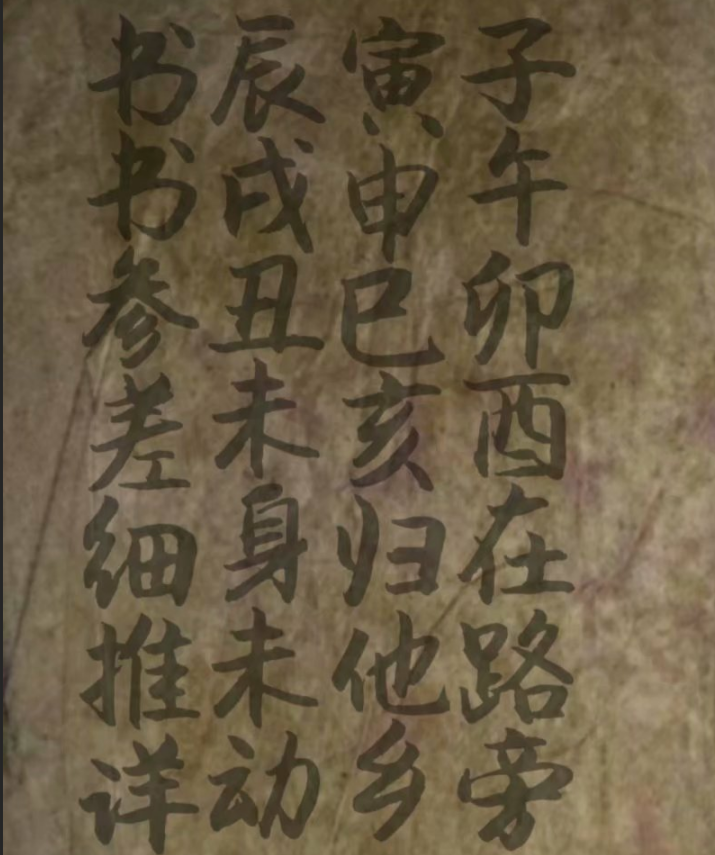 子午卯酉在路旁
寅申巳亥归他乡
辰戌丑未身未动
书书参差细推详